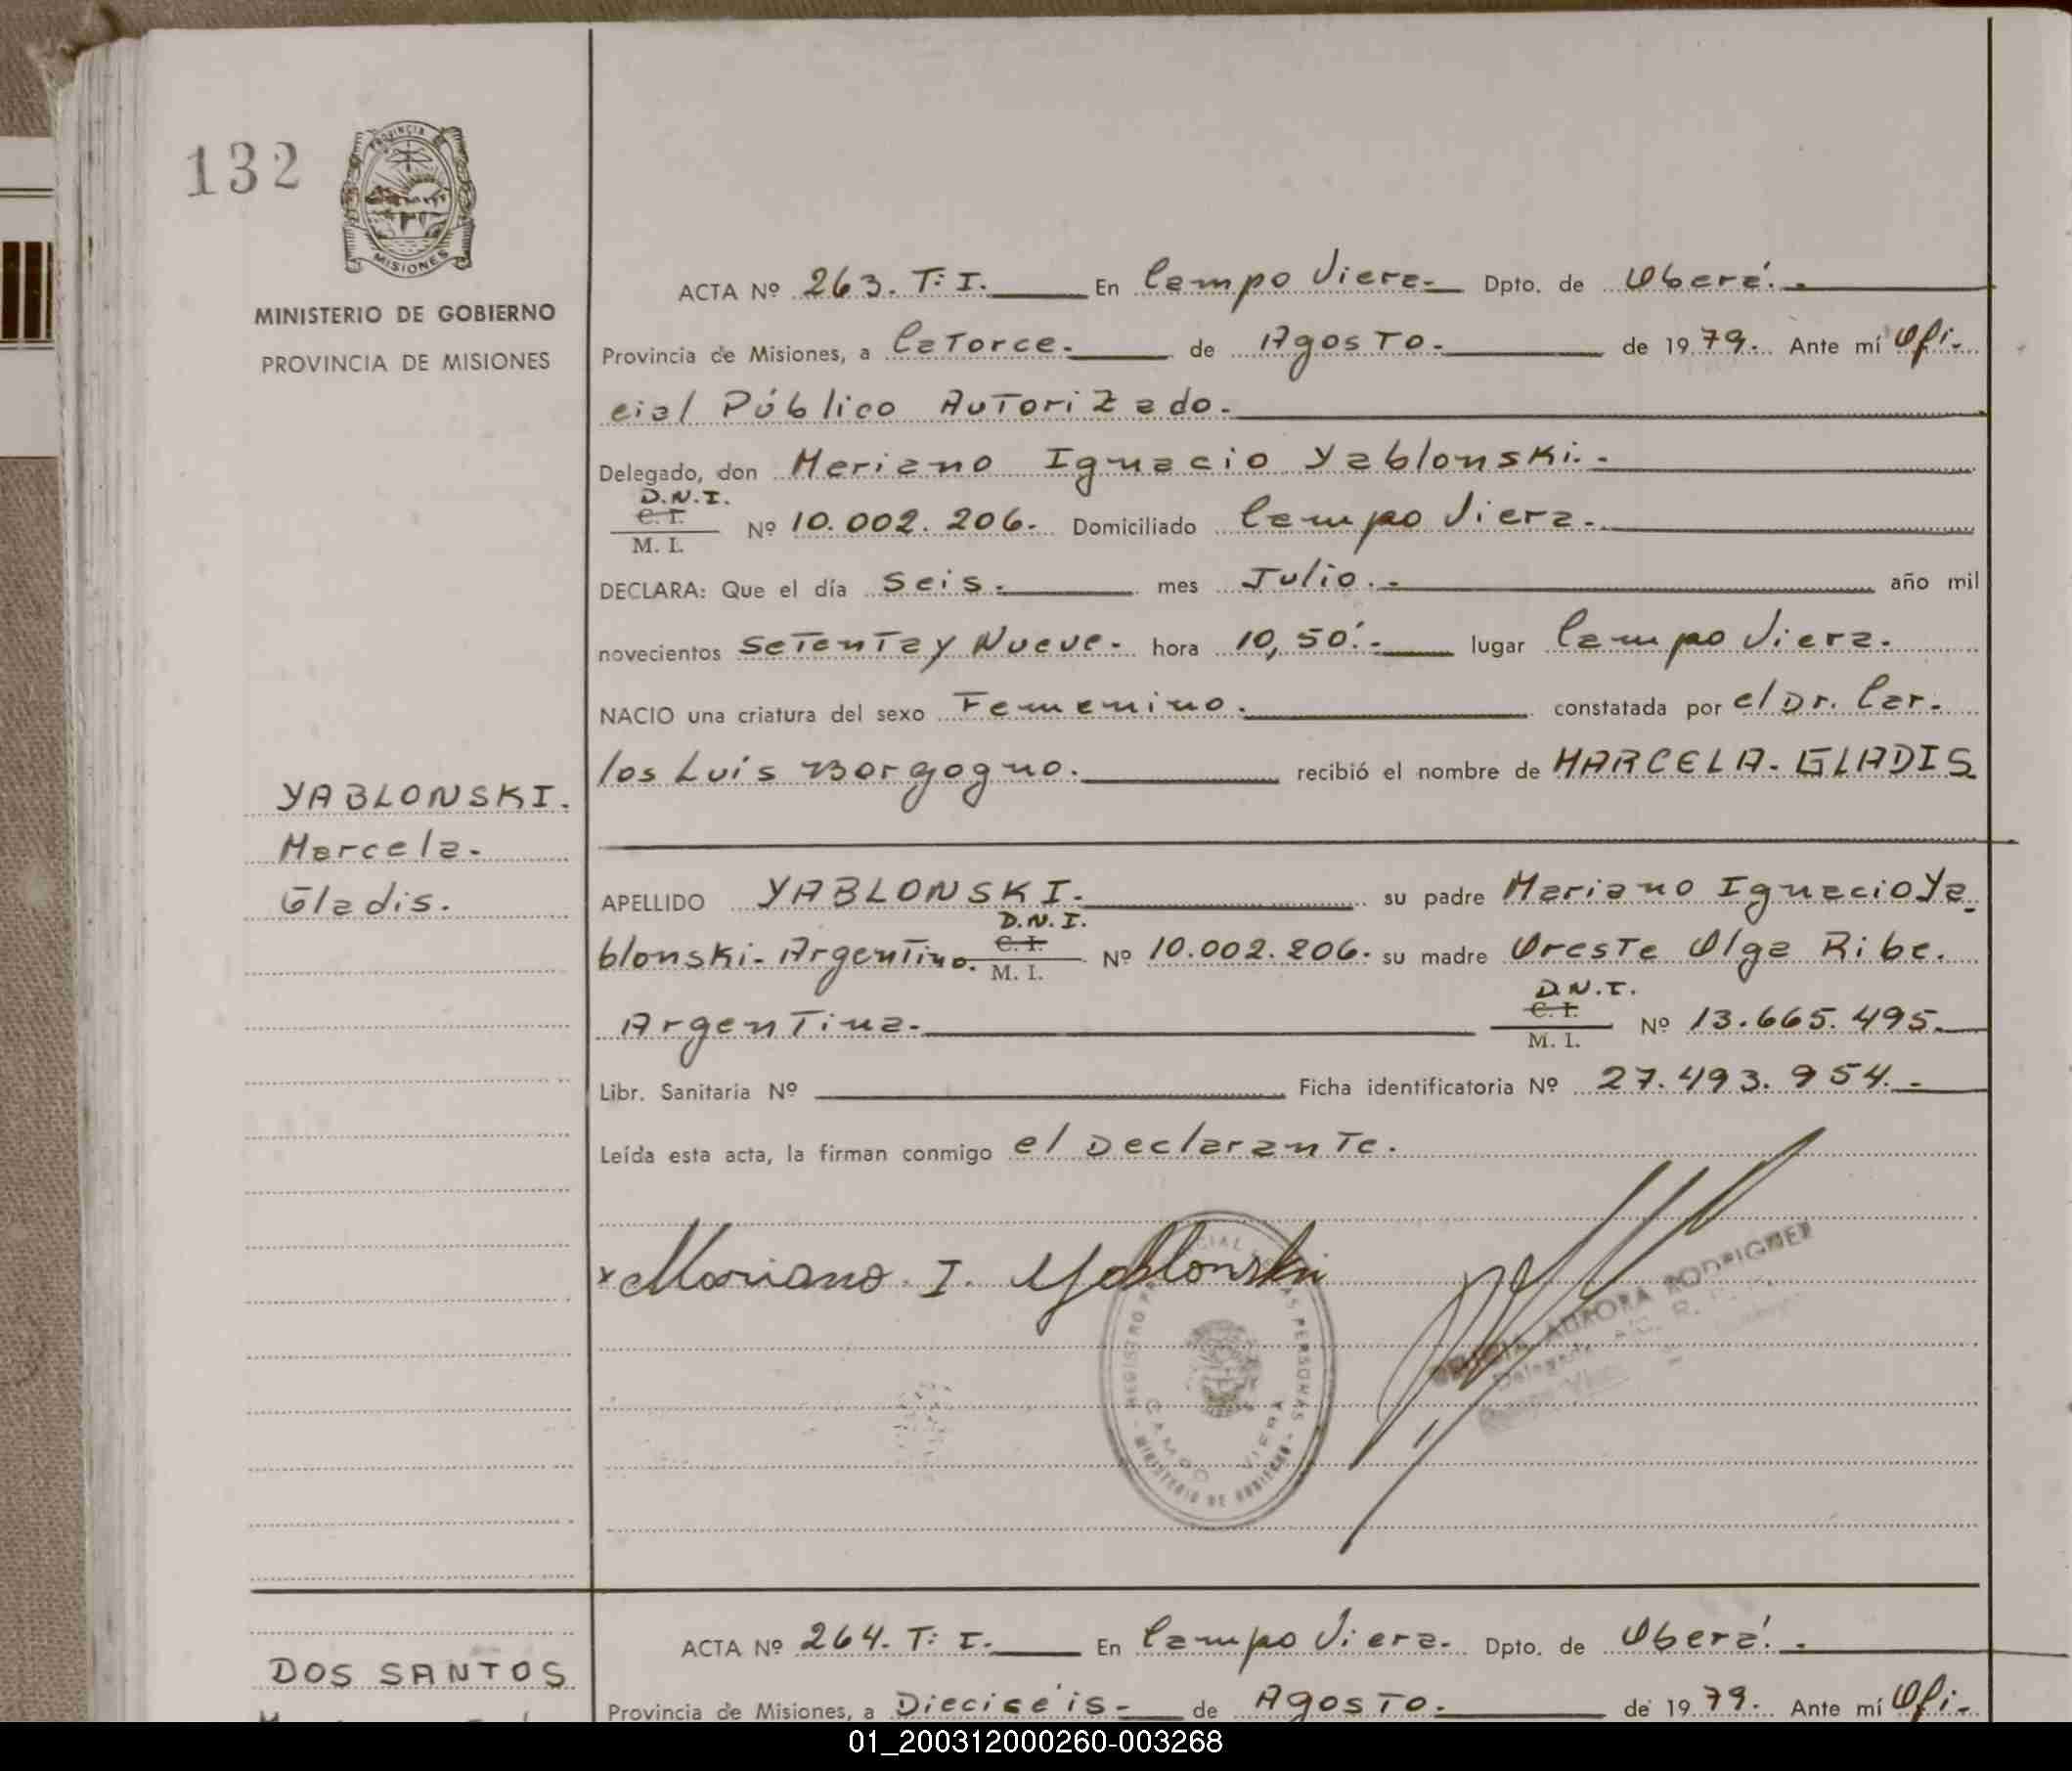 132
PROVINCIA
MISIONES
MINISTERIO DE GOBIERNO
PROVINCIA DE MISIONES
ACTA Nº 263. T: I. En Campo Viera. Dpto. de Oberá.
Provincia de Misiones, a Catorce. de Agosto. de 1979. Ante mí Ofi-
cial Público Autorizado.
Delegado, don Mariano Ignacio Yablonski.
D.N.I.
C. I.
M. I. Nº 10.002.206. Domiciliado Campo Viera.
DECLARA: Que el día Seis. mes Julio. año mil
novecientos Setenta y Nueve. hora 10,50'. lugar Campo Viera.
NACIO una criatura del sexo Femenino. constatada por el Dr. Car-
los Luís Borgogno. recibió el nombre de MARCELA-GLADIS
YABLONSKI.
Marcela.
Gladis.
APELLIDO YABLONSKI. su padre Mariano Ignacio Ya-
D.N.I.
C. I.
blonski-Argentino. M. I. Nº 10.002.206. su madre Oreste Olga Ribe.
D.N.I.
C. I.
Argentina. M. I. Nº 13.665.495.
Libr. Sanitaria Nº Ficha identificatoria Nº 27.493.954.
Leída esta acta, la firman conmigo el Declarante.
x Mariano. I. Yablonski
REGISTRO PERSONAS
CAMPO VIERA
MINISTERIO DE GOBIERNO
AURORA RODRIGUEZ
Delegada
DOS SANTOS
ACTA Nº 264. T: I. En Campo Viera. Dpto. de Oberá.
Provincia de Misiones, a Dieciséis de Agosto. de 1979. Ante mí Ofi-
01_200312000260-003268